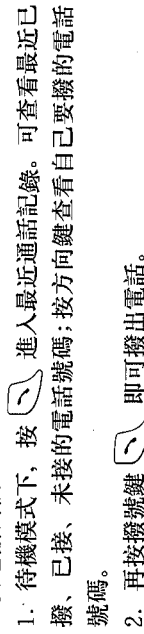 1. 待機模式下，按 進入最近通話記錄。可查看最近已
撥、已接、未接的電話號碼；按方向鍵查看自己要撥的電話
號碼。
2. 再按撥號鍵 即可撥出電話。